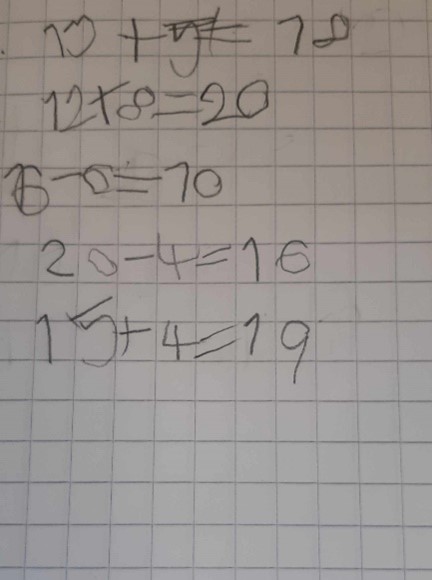 13 + 5 = 18
12+8=20
16-6=10
20-4=16
15+4=19